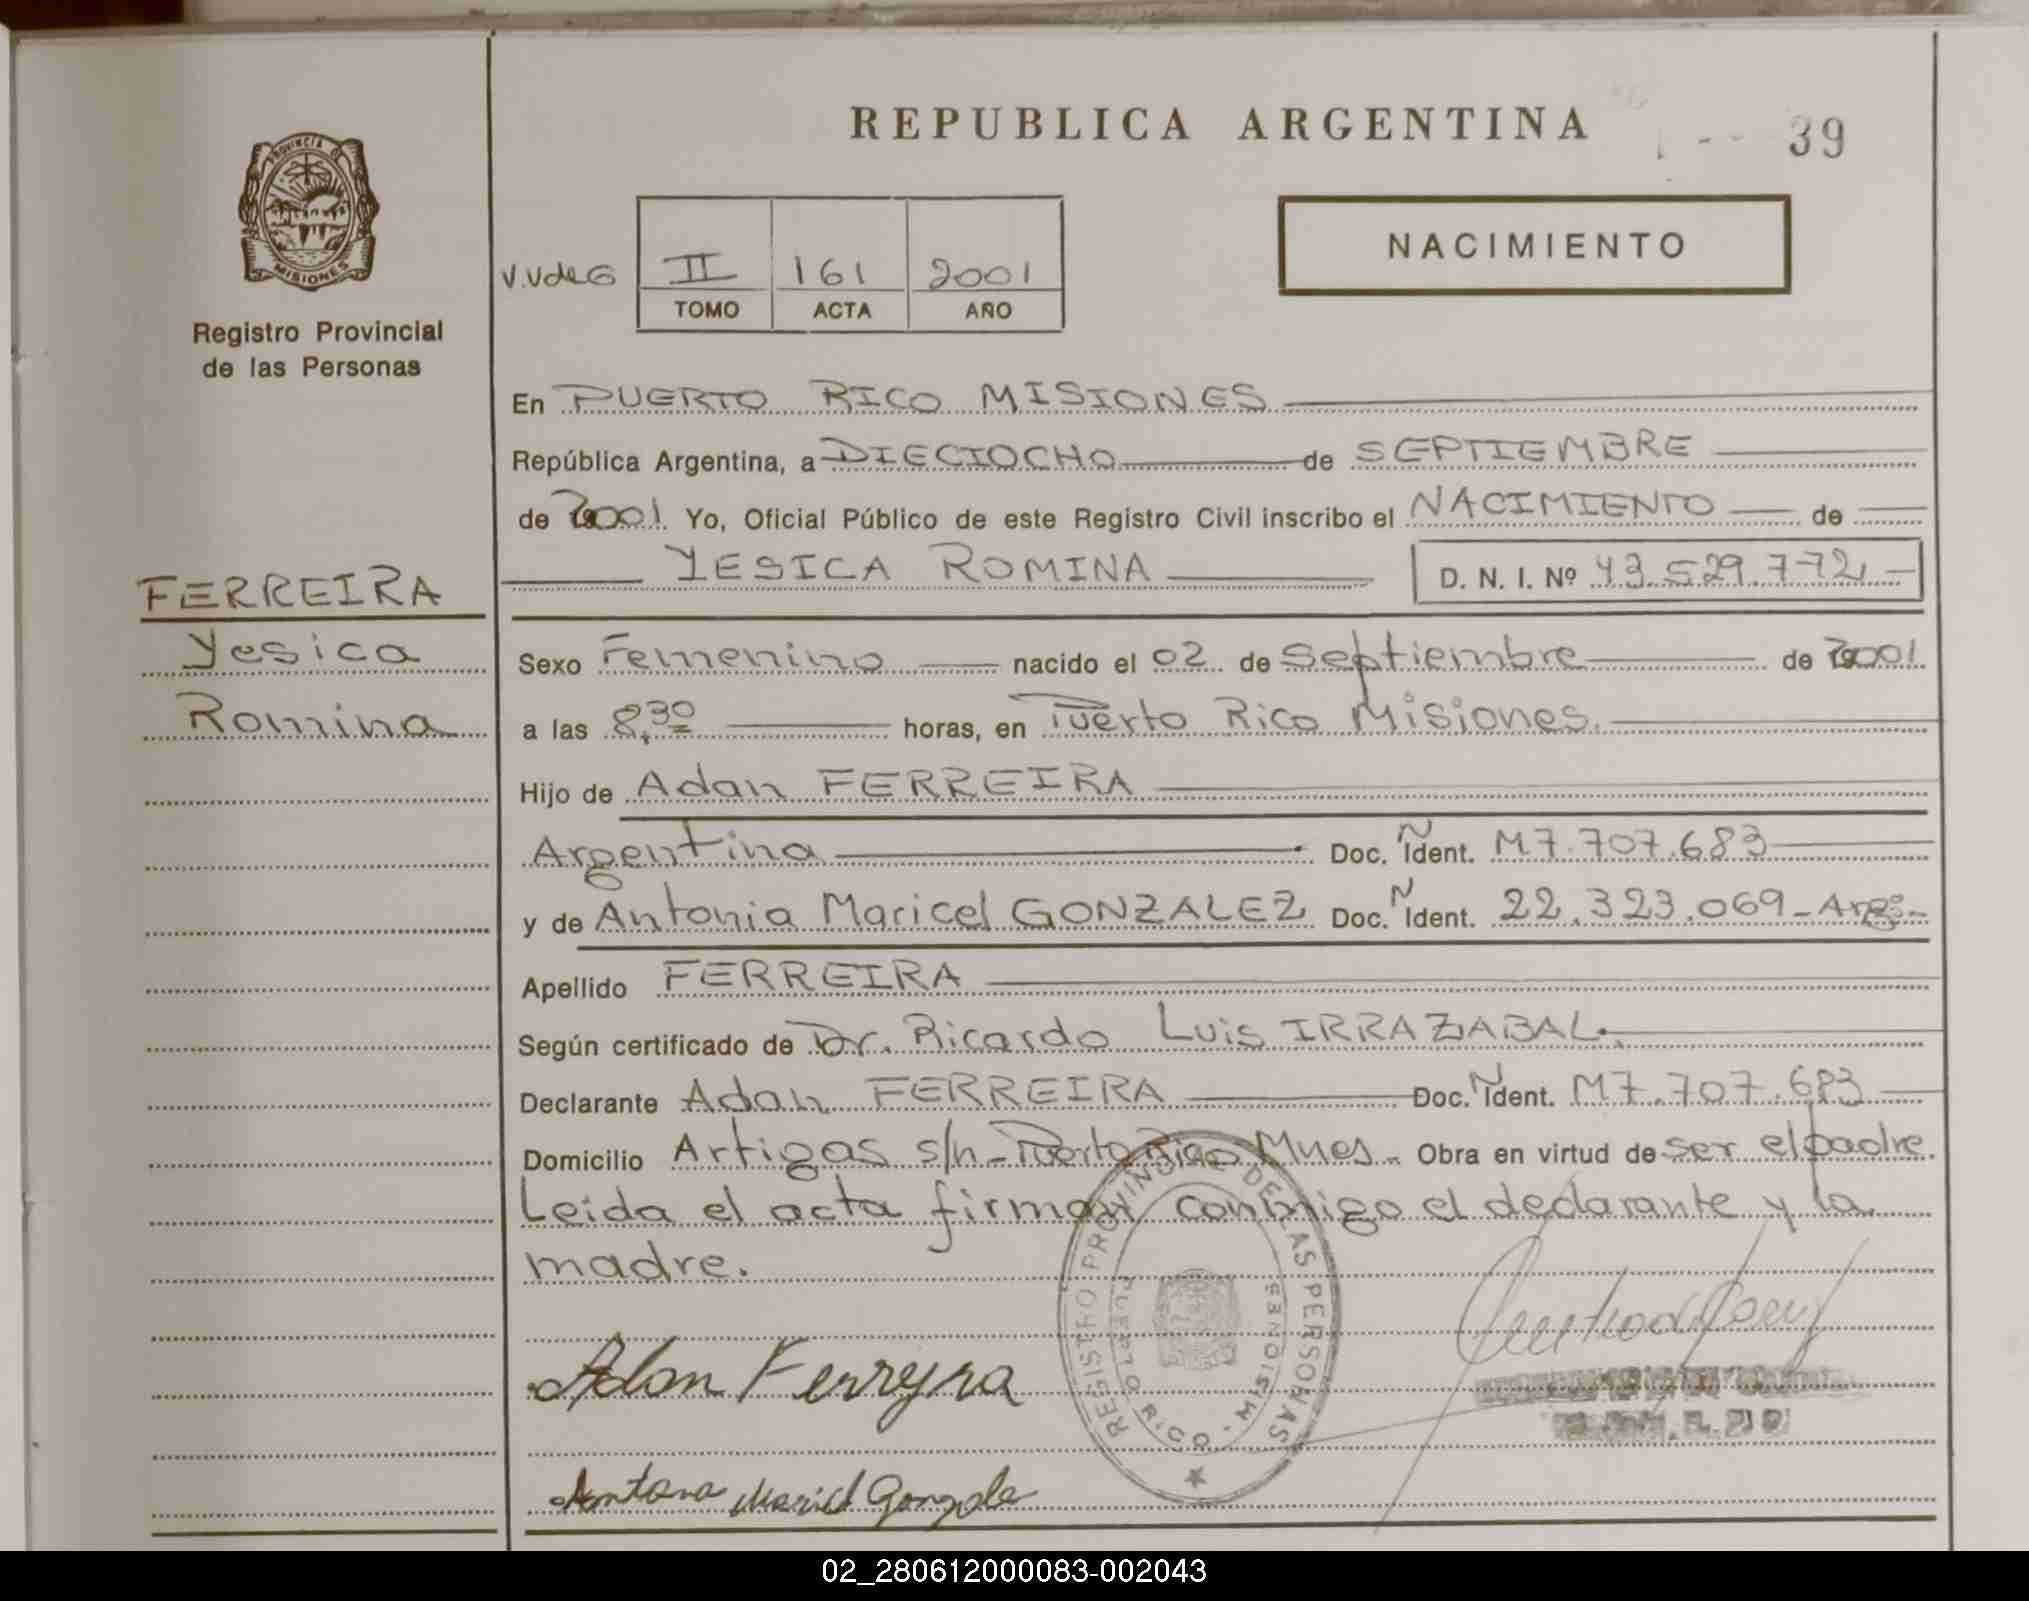 REPUBLICA ARGENTINA
39
PROVINCIA DE
MISIONES
Registro Provincial
de las Personas
V.VdeG
II 161 2001
TOMO ACTA AÑO
NACIMIENTO
En PUERTO RICO MISIONES
República Argentina, a DIECIOCHO de SEPTIEMBRE
de 2001 Yo, Oficial Público de este Registro Civil inscribo el NACIMIENTO de
YESICA ROMINA D. N. I. Nº 43.529.772,-
FERREIRA
Yesica
Romina
Sexo Femenino nacido el 02 de Septiembre de 2001
a las 8,30 horas, en Puerto Rico Misiones.
Hijo de Adan FERREIRA
Argentina Doc. Ident. M7.707.683
y de Antonia Maricel GONZALEZ Doc. Ident. 22.323.069-Arg-
Apellido FERREIRA
Según certificado de Dr. Ricardo Luis IRRAZABAL.
Declarante Adan FERREIRA Doc. Ident. M7.707.683
Domicilio Artigas s/n-Puerto Rico Mnes- Obra en virtud de ser el padre.
Leida el acta firman conmigo el declarante y la
madre.
REGISTRO PROVINCIAL DE LAS PERSONAS
PUERTO RICO - MISIONES
Adan Ferreyra
Antona Maricel Gonzale
02_280612000083-002043